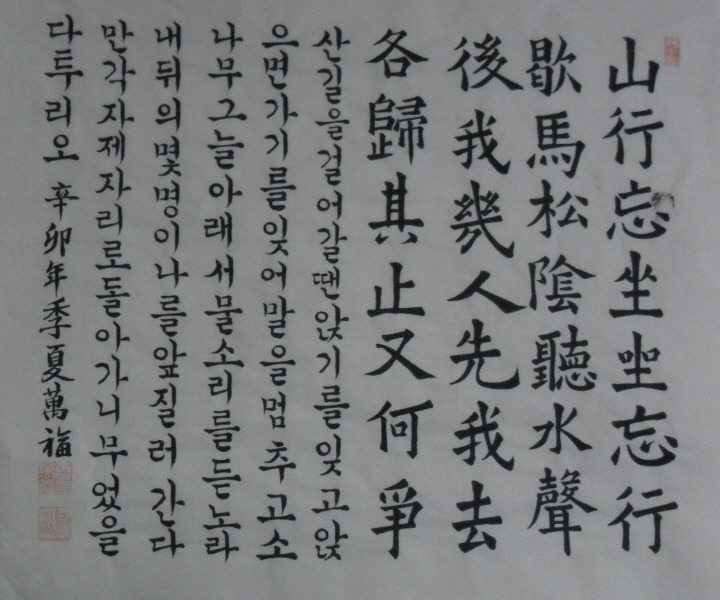 山行忘坐坐忘行
歇馬松陰聽水聲
後我幾人先我去
各歸其止又何爭
산길을걸어갈땐앉기를잊고앉
으면가기를잊어말을멈추고소
나무그늘아래서물소리를듣노라
내뒤의몇명이나를앞질러간다
만각자제자리로돌아가니무었을
다투리오 辛卯年季夏萬福